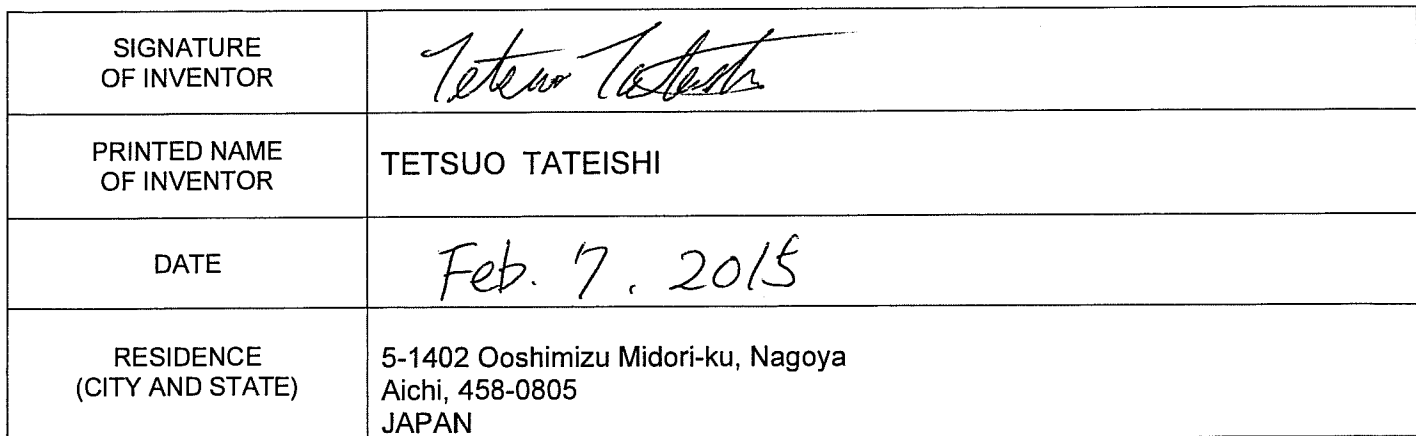 SIGNATURE
OF INVENTOR
Tetsuo Tateishi
PRINTED NAME
OF INVENTOR
TETSUO TATEISHI
DATE
Feb. 7. 2015
RESIDENCE
(CITY AND STATE)
5-1402 Ooshimizu Midori-ku, Nagoya
Aichi, 458-0805
JAPAN